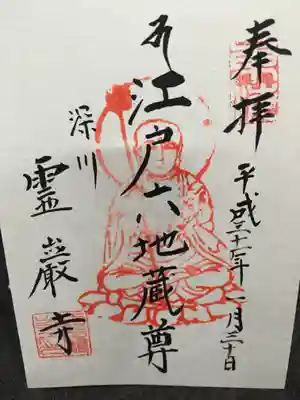 奉拝
平成三十一年一月三十日
江戸六地蔵尊
深川
霊巌寺